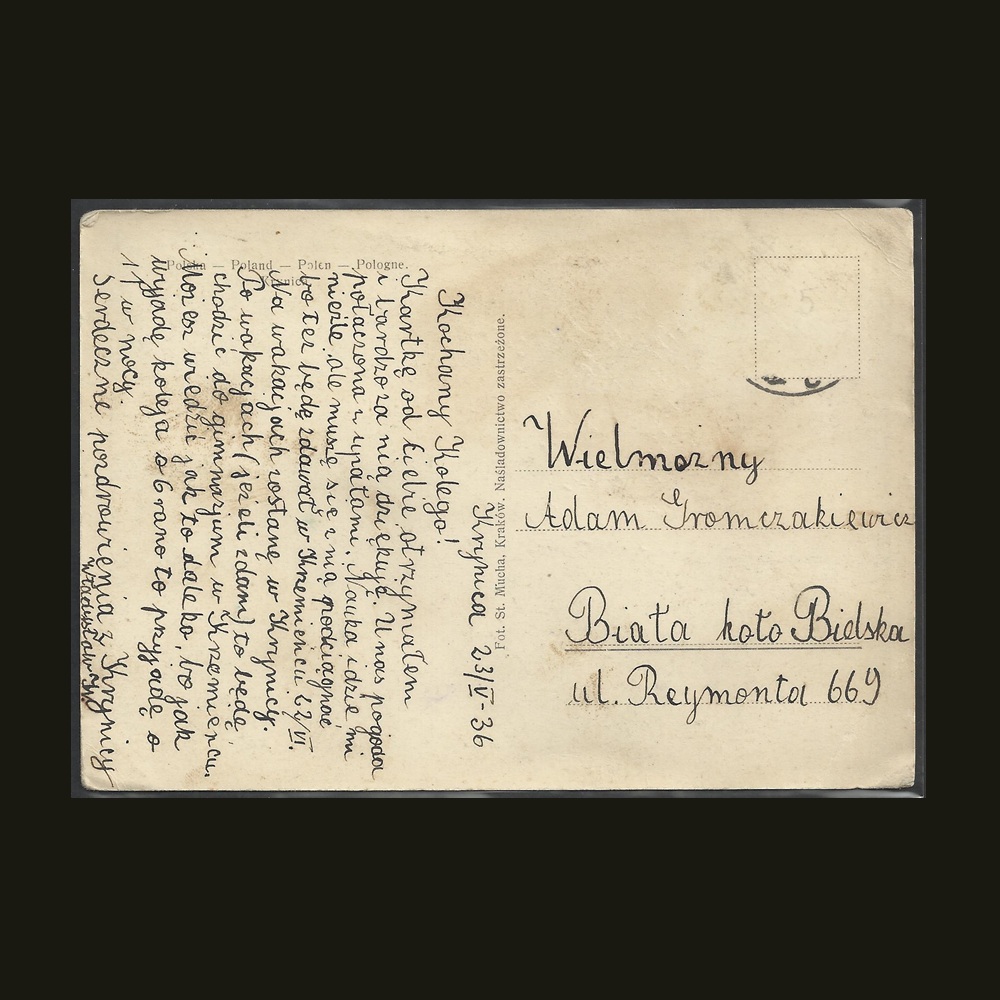 Polska — Poland — Polen — Pologne.
Krynica
Krynica 23/V-36
Kochany Kolego!
Kartkę od Ciebie otrzymałem
i bardzo za nią dziękuję. U nas pogoda
połączona z upałami. Nauka idzie mi
nieźle, ale muszę się z nią podciągnąć
bo też będę zdawał w Krzemieńcu 22/VI.
Na wakacjach zostanę w Krynicy.
Po wakacjach (jeżeli zdam) to będę
chodzić do gimnazjum w Krzemieńcu.
Możesz wiedzieć jak to daleko, bo jak
wyjadę koleją o 6 rano to przyjadę o
1 w nocy.
Serdeczne pozdrowienia z Krynicy
Władysław
Fot. St. Mucha, Kraków. Naśladownictwo zastrzeżone.
Wielmożny
Adam Gromczakiewicz
Biała koło Bielska
ul. Reymonta 669